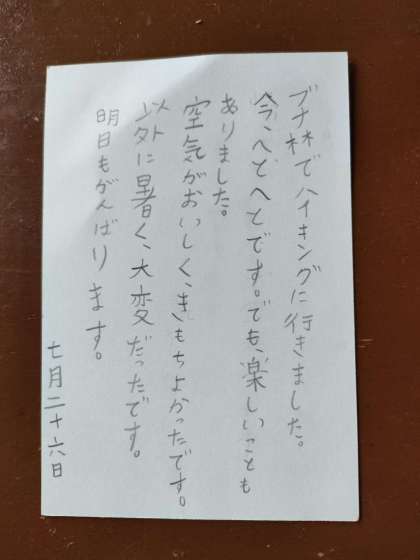 ブナ林でハイキングに行きました。
今、へとへとです。でも、楽しいことも
ありました。
空気がおいしく、きもちよかったです。
以外に暑く、大変だったです。
明日もがんばります。
七月二十六日